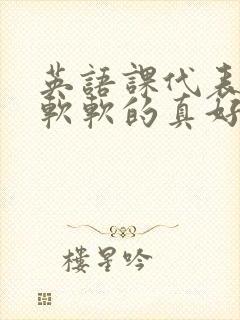 英語課代表
軟軟的真好
樓星吟